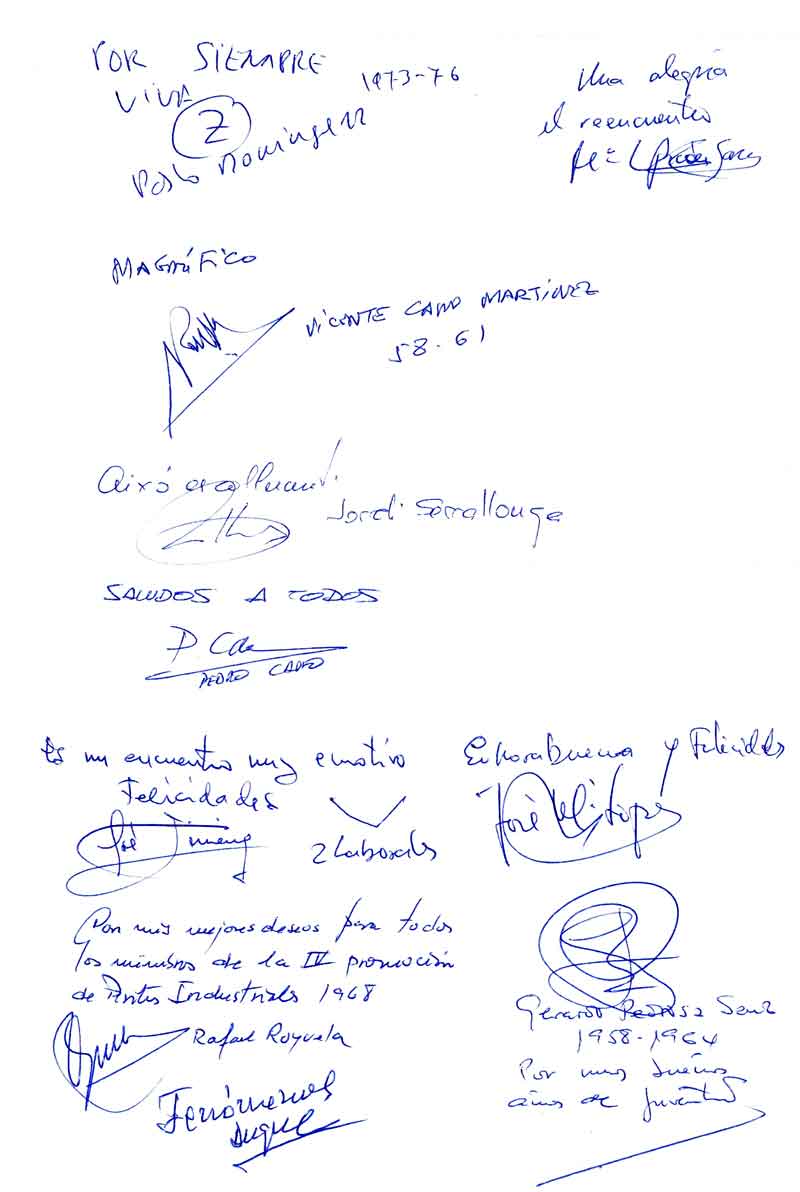 POR SIEMPRE
VIVA
Z
1973-76
Pablo Dominguez
Una alegria
el reencuentro
Mª
MAGNÍFICO
VICENTE CANO MARTINEZ
58-61
Això és collonut!
Jordi Serrallonga
SALUDOS A TODOS
P Ca
PEDRO CANO
Es un encuentro muy emotivo
Felicidades
José Jimenez
2 Laborales
Enhorabuena y Felicidades
José López
Con mis mejores deseos para todos
los miembros de la IV promoción
de Peritos Industriales 1968
Rafael Royuela
Fenómenos
Duque
Gerardo Pedrosa Sanz
1958-1964
Por muy buenos
años de juventud